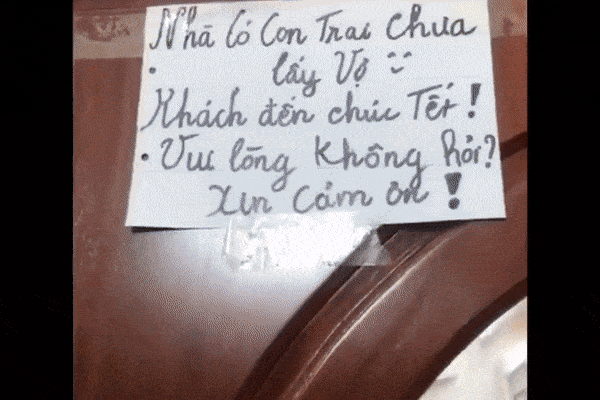 Nhà Có Con Trai Chưa
. lấy Vợ
Khách đến chúc Tết !
. Vui lòng Không hỏi?
Xin Cảm ơn !